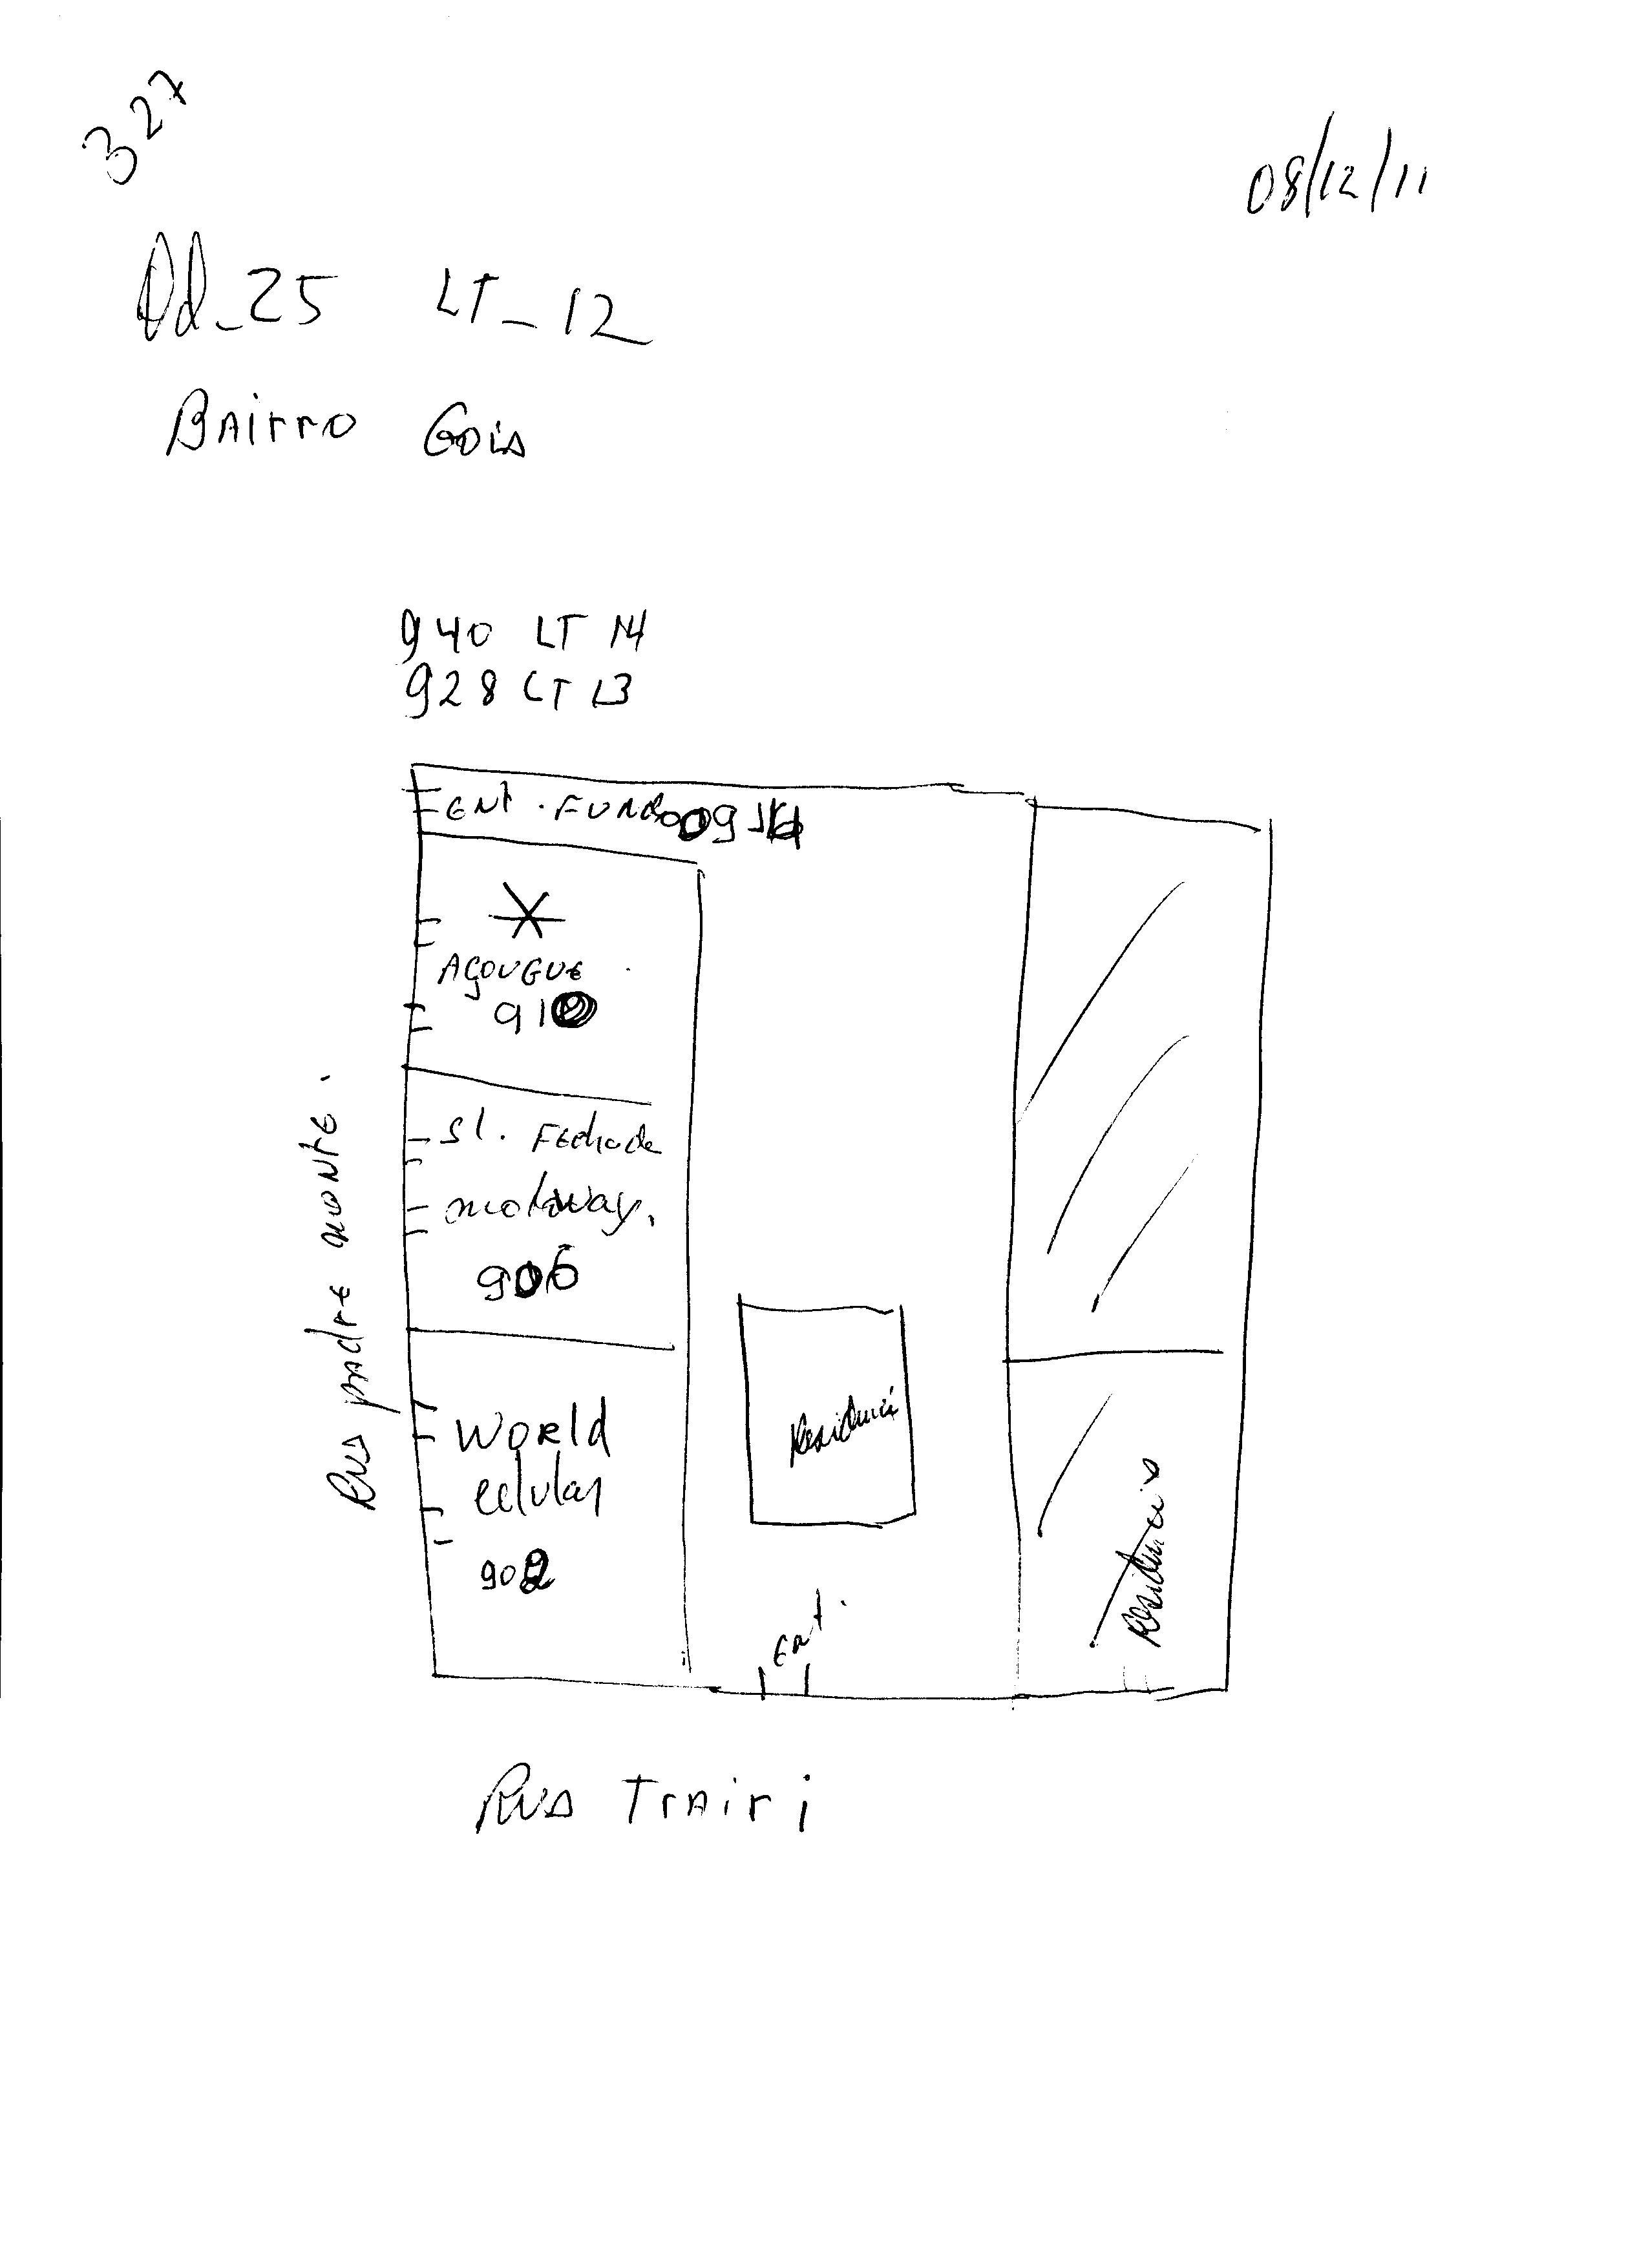 327
08/12/11
Qd_25 LT_12
BAirro Goiá
940 LT 14
928 LT 13
ENt. FUNdo 914
AÇOUGUE
910
Sl. FEchada
motoway.
906
World
celular
902
Residenci
Residencia
Ent.
RUA pAdre monte.
RUA TrAiri